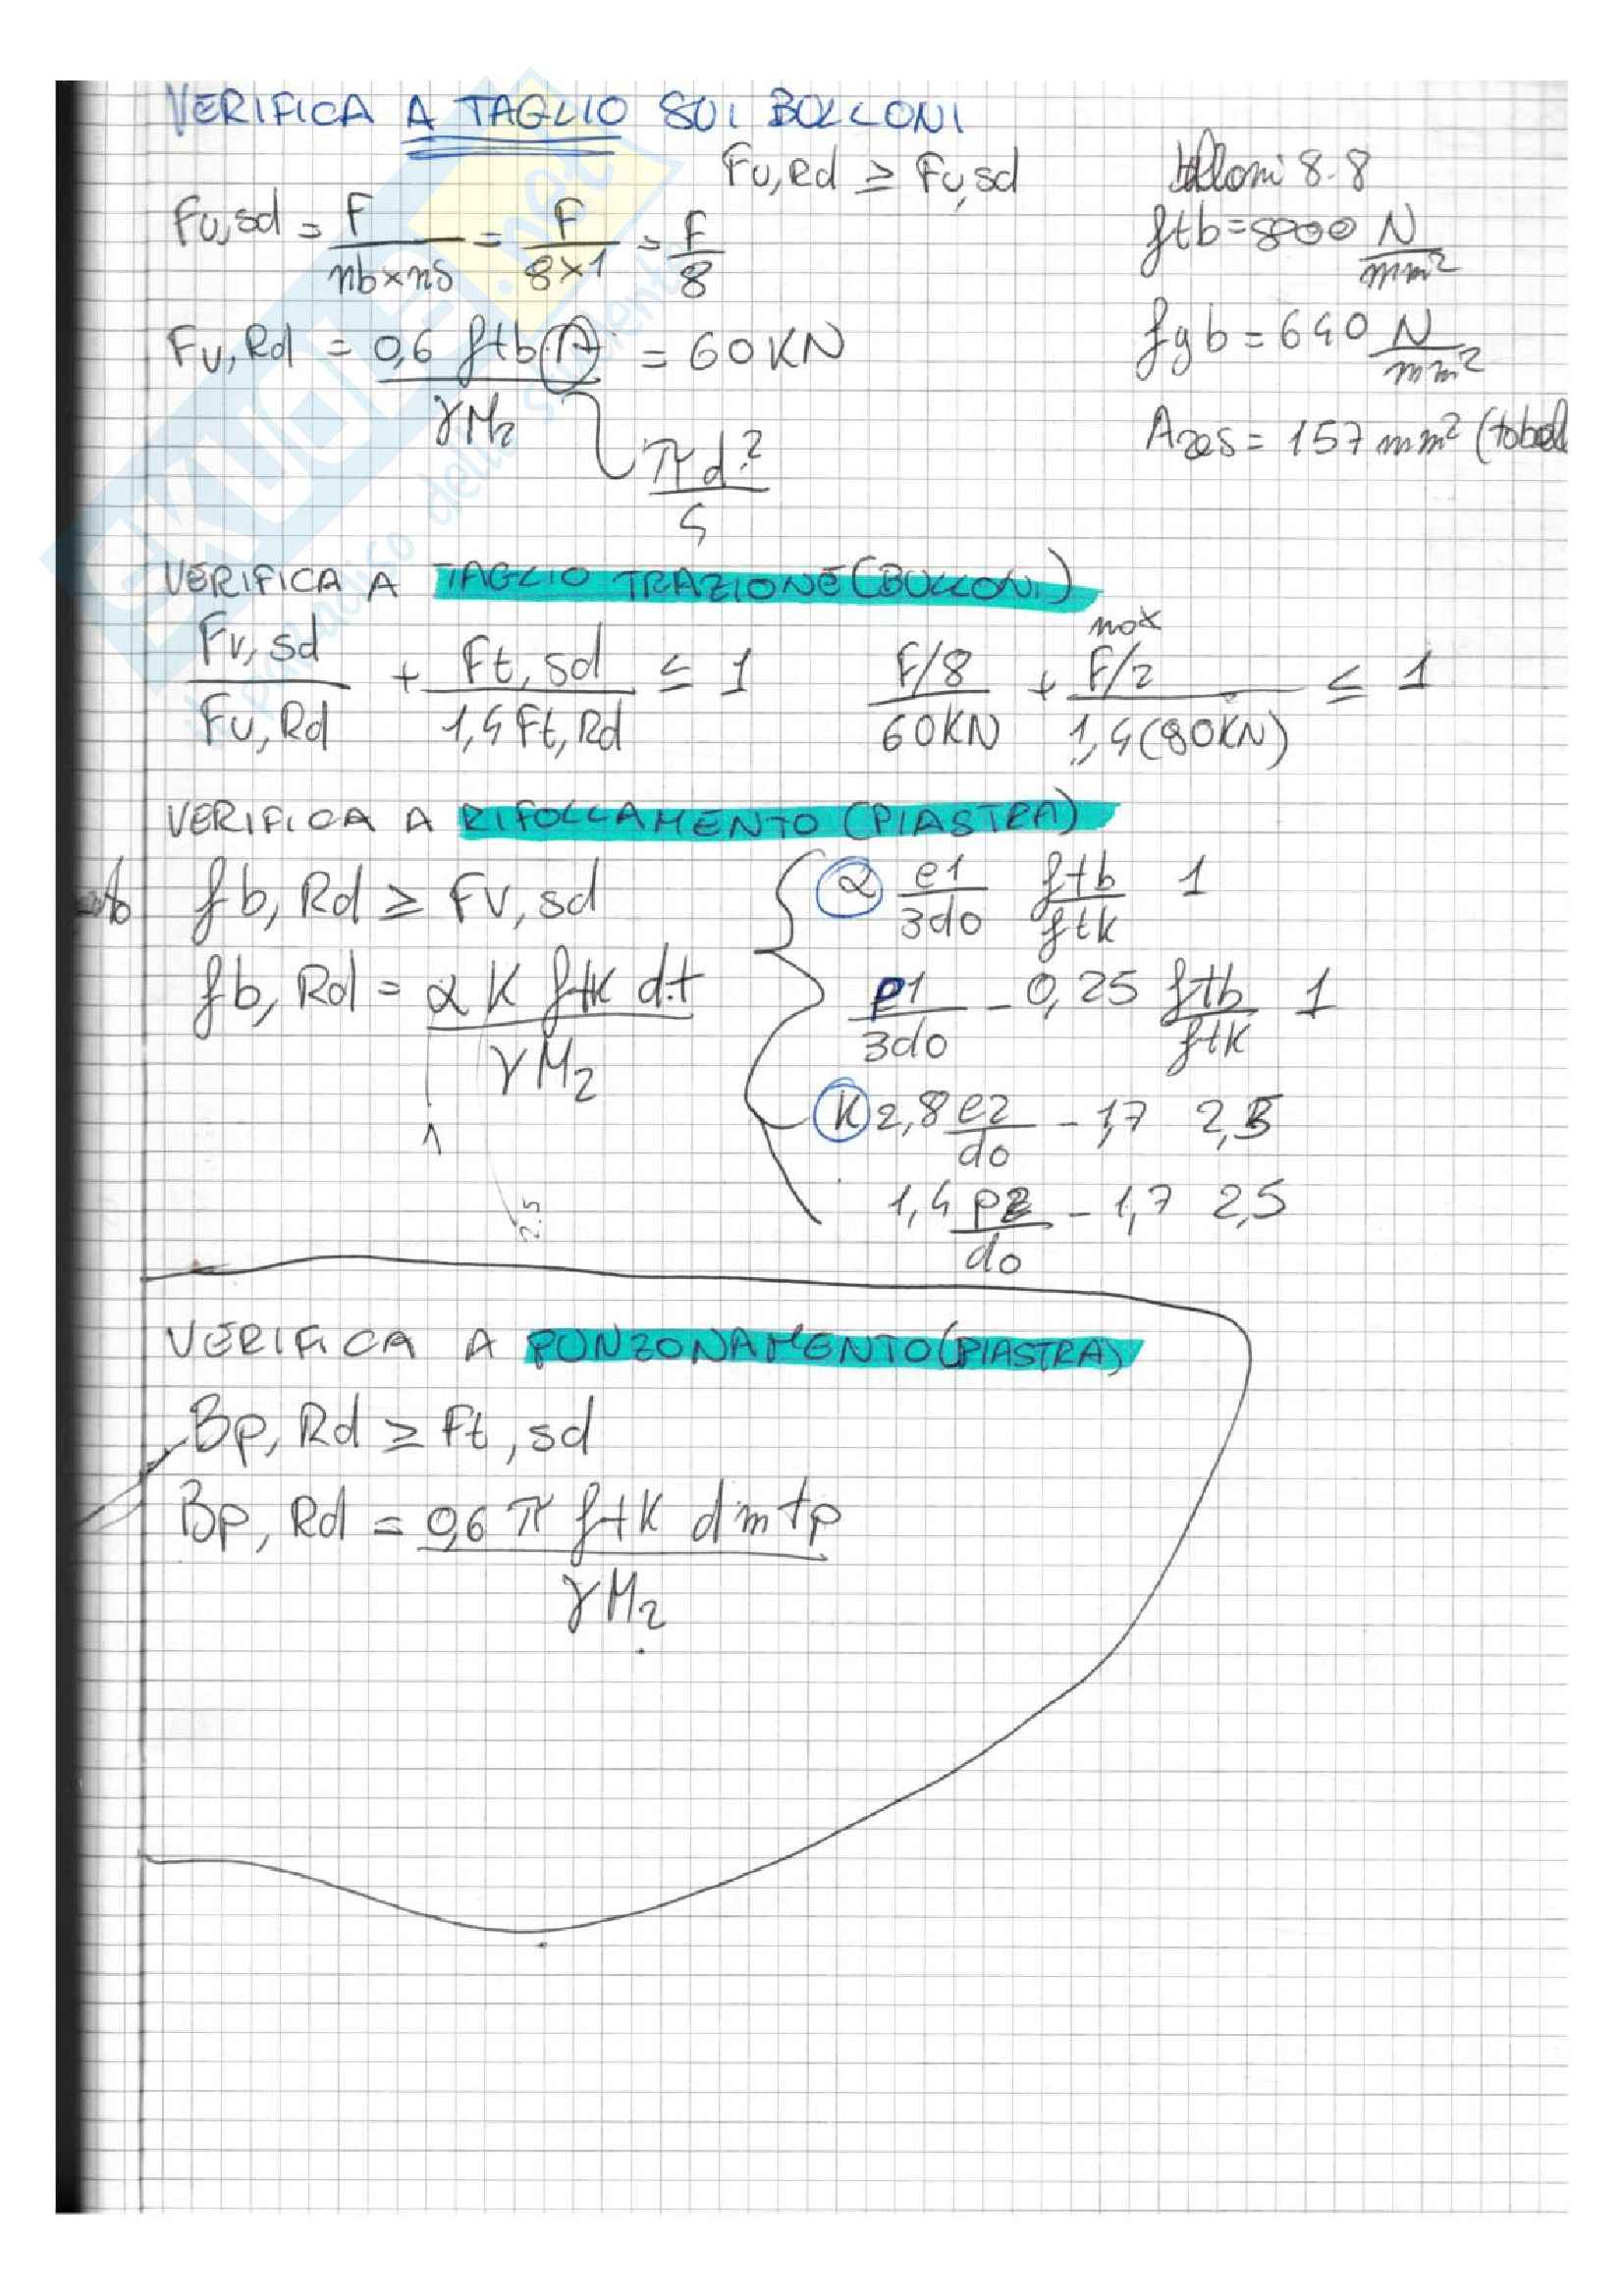 VERIFICA A TAGLIO SUI BOLLONI
Fv,Rd ≥ Fv,sd
bulloni 8.8
Fv,sd = F/(nb×ns) = F/(8×1) = F/8
ftb = 800 N/mm²
Fv,Rd = 0,6 ftb A/γM2 = 60 KN
fyb = 640 N/mm²
πd²/4
Ares = 157 mm² (tabel
VERIFICA A TAGLIO TRAZIONE (BULLONI)
Fv,sd/Fv,Rd + Ft,sd/1,4Ft,Rd ≤ 1
max
F/8/60KN + F/2/1,4(80KN) ≤ 1
VERIFICA A RIFOLLAMENTO (PIASTRA)
fb,Rd ≥ Fv,sd
α e1/3d0 ftb/ftk 1
fb,Rd = α K ftk d.t/γM2
p1/3d0 - 0,25 ftb/ftk 1
1
K 2,8 e2/d0 - 1,7 2,5
2.5
1,4 p2/d0 - 1,7 2,5
VERIFICA A PUNZONAMENTO (PIASTRA)
Bp,Rd ≥ Ft,sd
Bp,Rd = 0,6 π ftk dm tp/γM2